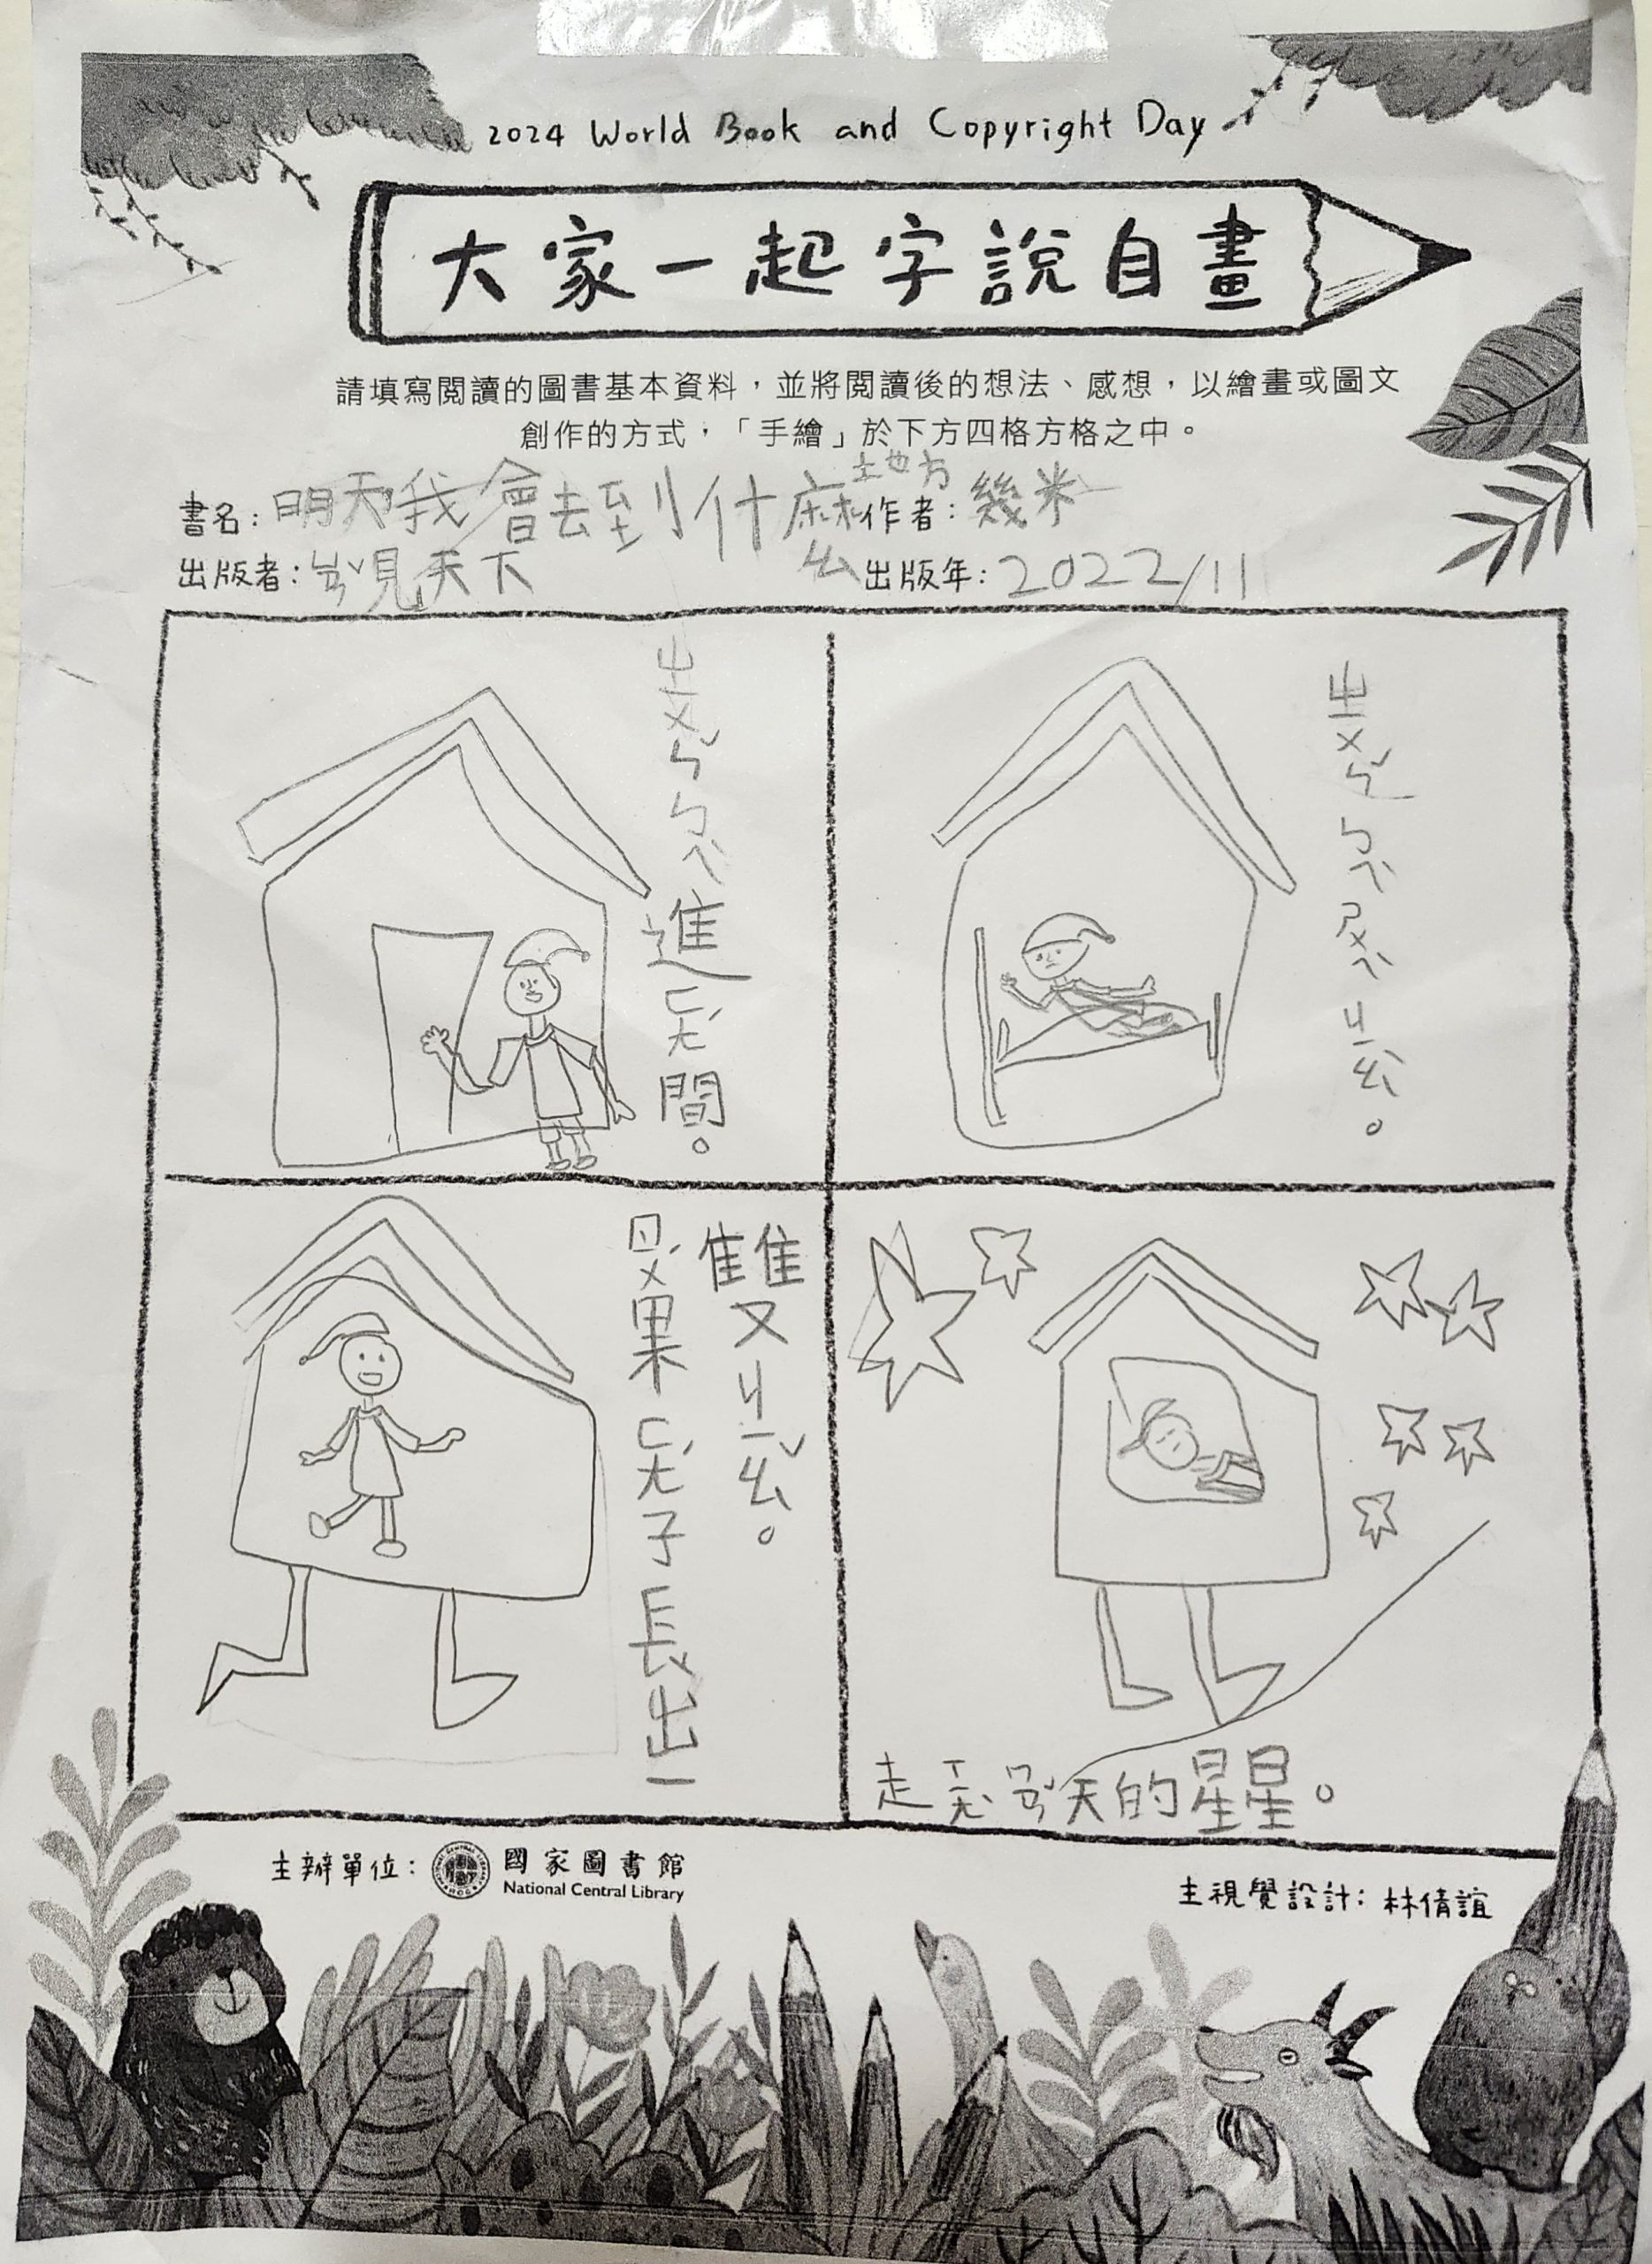 2024 World Book and Copyright Day
大家一起字說自畫
請填寫閱讀的圖書基本資料，並將閱讀後的想法、感想，以繪畫或圖文
創作的方式，「手繪」於下方四格方格之中。
書名：明天我會去到什麼地方
作者：幾米
出版者：見天下
出版年：2022/11
ㄓㄨㄣˇㄅㄟˋ進ㄈㄤˊ間。
ㄓㄨㄣˇㄅㄟˋㄕㄨㄟˋㄐㄧㄠˋ。
ㄖㄨˊ果ㄈㄤˊ子長出一
雙ㄐㄧㄠˇ。
走ㄒㄧㄤˋㄇㄢˇ天的星星。
主辦單位：國家圖書館
National Central Library
主視覺設計：林倩誼